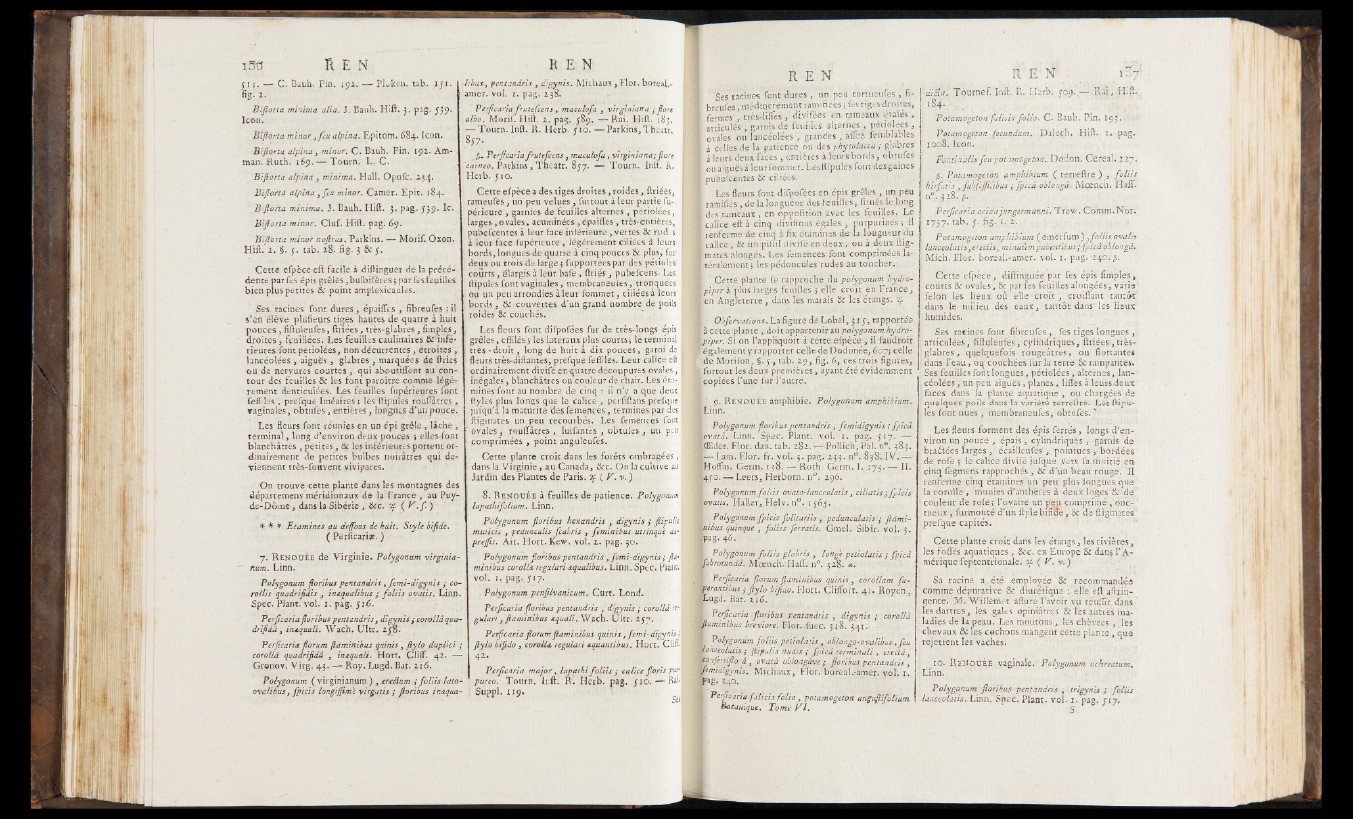 136 R E N
511. — C. Bauh. Pin. 192. — Pluken. tab. 151.
fig. 2.
Biſtorta minima alia. J. Bauh. Hiſt. 3. pag. 539.
Icon.
Biſtorta minor, ſeu alpina. Epitom. 684. Icon.
Biſtorta alpina, minor. C. Bauh. Pin. 192. Am-
man. Ruth. 169. — Tourn. L. C.
Biſtorta alpina, minima. Hall. Opuſc. 234.
Biſtorta alpina, ſeu minor. Camer. Epit. 184.
Biſtorta minima. J. Bauh. Hiſt. 3. pag. 539. Ic.
Biſtorta minor. Cluſ. Hiſt. pag. 69.
Biſtorta minor noſtras. Parkins. — Moriſ. Oxon.
Hiſt. 2. §. 5. tab. 28. fig. 3 & 5.
Cette eſpèce eſt facile à diſtinguer de la précé-
dente par ſes épis grêles, bulbifères; par ſes feuilles
bien plus petites & point amplexicaules.
Ses racines ſont dures, épaiſſes, fibreuſes : il
s'en élève pluſieurs tiges hautes de quatre à huit
pouces, fiſtuleuſes, ſtriées, très-glabres, ſimples,
droites, feuillées. Les feuilles caulinaires & infé-
rieures ſont pétiolées, non décurrentes, étroites,
lancéolées, aiguës, glabres, marquées de ſtries
ou de nervures courtes, qui aboutiſſent au con-
tour des feuilles & les font paroître comme légé-
rement denticulées. Les feuilles ſupérieures ſont
ſeſſiles, preſque linéaires; les ſtipules rouſſâtres,
vaginales, obtuſes, entières, longues d'un pouce.
Les fleurs ſont réunies en un épi grêle, lâche,
terminal, long d'environ deux pouces; elles ſont
blanchâtres, petites, & les inférieures portent or-
dinairement de petites bulbes noirâtres qui de-
viennent très-ſouvent vivipares.
On trouve cette plante dans les montagnes des
départemens méridionaux de la France, au Puy-
de-Dôme, dans la Sibérie, &c. ♃ ( V. ſ. )
* * * Etamines au deſſous de huit. Style bifide.
( Perſicariæ. )
7. RENOUÉE de Virginie. Polygonum virginia-
num. Linn.
Polygonum floribus pentandris, ſemi-digynis; co-
rollis quadrifidis, inæqualibus; foliis ovatis. Linn.
Spec. Plant. vol. 1. pag. 516.
Perſicaria floribus pentandris, digynis; corollâ qua-
drifidâ, inæquali. Wach. Ultr. 258.
Perſicaria florum ſtaminibus quinis, ſtylo duplici;
corollâ quadrifidâ, inæquali. Hort. Cliff. 42. —
Gronov. Virg. 43. — Roy. Lugd. Bat. 216.
Polygonum ( virginianum ), erectum; foliis lato-
ovalibus, ſpicis longiſſimè virgatis; floribus inæqua-
R E N
libus, pentandris, digynis. Michaux, Flor. boreal.-
amer. vol. 1. pag. 238.
Perſicaria fruteſcens, maculoſa, virginiana; flore
albo. Moriſ. Hiſt. 2. pag. 589. — Rai. Hiſt. 183.
— Tourn. Inſt. R. Herb. 510. — Parkins, Theatr.
857.
β. Perſicaria fruteſcens, maculoſa, virginiana; flore
carneo. Parkins, Theatr. 857. — Tourn. Inſt. R.
Herb. 510.
Cette eſpèce a des tiges droites, roides, ſtriées,
rameuſes, un peu velues, ſurtout à leur partie ſu-
périeure, garnies de feuilles alternes, pétiolées,
larges, ovales, acuminées, épaiſſes, très-entières,
pubeſcentes à leur face inférieure, vertes & rudes
à leur face ſupérieure, légérement ciliées à leurs
bords, longues de quatre à cinq pouces & plus, ſur
deux ou trois de large; ſupportées par des pétioles
courts, élargis à leur baſe, ſtriés, pubeſcens. Les
ſtipules ſont vaginales, membraneuſes, tronquées
ou un peu arrondies à leur ſommet, ciliées à leurs
bords, & couvertes d'un grand nombre de poils
roides & couchés.
Les fleurs ſont diſpoſées ſur de très-longs épis
grêles, effilés; les latéraux plus courts; le terminal
très-droit, long de huit à dix pouces, garni de
fleurs très-diſtantes, preſque ſeſſiles. Leur calice eſt
ordinairement diviſé en quatre découpures ovales,
inégales, blanchâtres ou couleur de chair. Les éta-
mines ſont au nombre de cinq : il n'y a que deux
ſtyles plus longs que le calice, perſiſtans preſque
juſqu'à la maturité des ſemences, terminés par des
ſtigmates un peu recourbés. Les ſemences ſont
ovales, rouſſâtres, luiſantes, obtuſes, un peu
comprimées, point anguleuſes.
Cette plante croît dans les forêts ombragées,
dans la Virginie, au Canada, &c. On la cultive au
Jardin des Plantes de Paris. ♃ ( V. v. )
8. RENOUÉE à feuilles de patience. Polygonum
lapathifolium. Linn.
Polygonum floribus hexandris, digynis; ſtipulis
muticis, pedunculis ſcabris, ſeminibus utrinque de-
preſſis. Ait. Hort. Kew. vol. 2. pag. 30.
Polygonum floribus pentandris, ſemi-digynis; ſta-
minibus corollâ regulari æqualibus. Linn. Spec. Plant.
vol. 1. pag. 517.
Polygonum penſilvanicum. Curt. Lond.
Perſicaria floribus pentandris, digynis; corollâ re-
gulari, ſtaminibus æquali. Wach. Ultr. 257.
Perſicaria florum ſtaminibus quinis, ſemi-digynis;
ſtylo bifido, corollâ regulari æquantibus. Hort. Cliff.
42.
Perſicaria major, lapathi foliis; calice floris pur-
pureo. Tourn. Inſt. R. Herb. pag. 510. — Rai.
Suppl. 119.
R E N
Ses racines ſont dures, un peu tortueuſes, fi-
breuſes, médiocrement ramifiées; ſes tiges droites,
fermes, très-liſſes, diviſées en rameaux étalés,
articulés, garnis de feuilles alternes, pétiolées,
ovales ou lancéolées, grandes, aſſez ſemblables
à celles de la patience ou des phytolacca; glabres
à leurs deux faces, entières à leurs bords, obtuſes
ou aiguës à leur ſommet. Les ſtipules ſont des gaînes
pubeſcentes & ciliées.
Les fleurs ſont diſpoſées en épis grêles, un peu
ramifiés, de la longueur des feuilles, ſitués le long
des rameaux, en oppoſition avec les feuilles. Le
calice eſt à cinq diviſions égales, purpurines; il
renferme de cinq à ſix étamines de la longueur du
calice, & un piſtil diviſé en deux, ou à deux ſtig-
mates alongés. Les ſemences ſont comprimées la-
téralement; les pédoncules rudes au toucher.
Cette plante ſe rapproche du polygonum hydro-
piper à plus larges feuilles; elle croît en France,
en Angleterre, dans les marais & les étangs. ♃
Obſervations. La figure de Lobel, 315, rapportée
à cette plante, doit appartenir au polygonum hydro-
piper. Si on l'appliquoit à cette eſpèce, il faudroit
également y rapporter celle de Dodonée, 607; celle
de Moriſon, §. 5, tab. 29, fig. 6, ces trois figures,
ſurtout les deux premières, ayant été évidemment
copiées l'une ſur l'autre.
9. RENOUÉE amphibie. Polygonum amphibium.
Linn.
Polygonum floribus pentandris, ſemidigynis; ſpicâ
ovatâ. Linn. Spec. Plant. vol. 1. pag. 517. —
Œder. Flor. dan. tab. 282. — Pollich, Pal. n°. 383.
— Lam. Flor. fr. vol. 3. pag. 233. n°. 838. IV. —
Hoffm. Germ. 138. — Roth. Germ. I. 173. — II.
450. — Leers, Herborn. n°. 296.
Polygonum foliis ovato-lanceolatis, ciliatis; ſpicis
ovatis. Haller, Helv. n°. 1563.
Polygonum ſpicis ſolitariis, pedunculatis; ſtami-
nibus quinque, foliis ſerratis. Gmel. Sibir. vol. 3.
pag. 46.
Polygonum foliis glabris, longè petiolatis; ſpicâ
ſubrotundâ. Mœnch. Haſſ. n°. 328. α.
Perſicaria florum ſtaminibus quinis, corollam ſu-
perantibus; ſtylo bifido. Hort. Cliffort. 41. Royen,
Lugd. Bat. 216.
Perſicaria floribus pentandris, digynis; corollâ
ſtaminibus breviore. Flor. ſuec. 318. 341.
Polygonum foliis petiolatis, oblongo-ovalibus, ſeu
lanceolatis; ſtipulis nudis; ſpicâ terminali, erectâ,
confertiflorâ, ovatâ oblongâve; floribus pentandris,
ſemidigynis. Michaux, Flor. boreal.-amer. vol. 1.
pag. 240.
Perſicaria ſalicis folio, potamogeton anguſtifolium
Botanique. Tome VI.
R E N 137
dicta. Tournef. Inſt. R. Herb. 509. — Rai, Hiſt.
184.
Potamogeton ſalicis folio. C. Bauh. Pin. 193.
Potamogeton ſecundum. Dalech. Hiſt. 1. pag.
1008. Icon.
Fontinalis ſeu potamogeton. Dodon. Cereal. 227.
β. Potamogeton amphibium ( terreſtre ), foliis
hirſutis, ſubſeſſilibus; ſpicâ oblongâ. Mœnch. Haſſ.
n°. 328. β.
Perſicaria acida jungermanni. Trew. Comm. Nor.
1737. tab. 5. fig. 1. 2.
Potamogeton amphibium ( emerſum ), foliis ovali-
lanceolatis, erectis, minutim pubentibus; ſpicâ oblongâ.
Mich. Flor. boreal.-amer. vol. 1. pag. 240. β.
Cette eſpèce, diſtinguée par ſes épis ſimples,
courts & ovales, & par ſes feuilles alongées, varie
ſelon les lieux où elle croît, croiſſant tantôt
dans le milieu des eaux, tantôt dans les lieux
humides.
Ses racines ſont fibreuſes, ſes tiges longues,
articulées, fiſtuleuſes, cylindriques, ſtriées, très-
glabres, quelquefois rougeâtres, ou flottantes
dans l'eau, ou couchées ſur la terre & rampantes.
Ses feuilles ſont longues, pétiolées, alternes, lan-
céolées, un peu aiguës, planes, liſſes à leurs deux
faces dans la plante aquatique, ou chargées de
quelques poils dans la variété terreſtre. Les ſtipu-
les ſont nues, membraneuſes, obtuſes.
Les fleurs forment des épis ſerrés, longs d'en-
viron un pouce, épais, cylindriques, garnis de
bractées larges, écailleuſes, pointues, bordées
de roſe; le calice diviſé juſque vers ſa moitié en
cinq ſegmens rapprochés, & d'un beau rouge. Il
renferme cinq étamines un peu plus longues que
la corolle, munies d'anthères à deux loges & de
couleur de roſe; l'ovaire un peu comprimé, onc-
tueux, ſurmonté d'un ſtyle bifide, & de ſtigmates
preſque capités.
Cette plante croît dans les étangs, les rivières,
les foſſés aquatiques, &c. en Europe & dans l'A-
mérique ſeptentrionale. ♃ ( V. v. )
Sa racine a été employée & recommandée
comme dépurative & diurétique : elle eſt aſtrin-
gente. M. Willemet aſſure l'avoir vu réuſſir dans
les dartres, les gales opiniâtres & les autres ma-
ladies de la peau. Les moutons, les chèvres, les
chevaux & les cochons mangent cette plante, que
rejettent les vaches.
10. RENOUÉE vaginale. Polygonum ochreatum.
Linn.
Polygonum floribus pentandris, trigynis; foliis
lanceolatis. Linn. Spec. Plant. vol. 1. pag. 517.
S